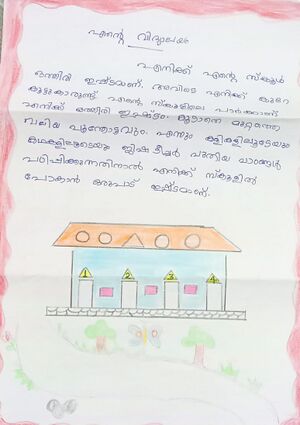 എന്റെ വിദ്യാലയം
എനിക്ക് എന്റെ സ്കൂൾ
ഒത്തിരി ഇഷ്ടമാണ്. അവിടെ എനിക്ക് കുറേ
കൂട്ടുകാരുണ്ട്. എന്റെ സ്കൂളിലെ പാർക്കാണ്
എനിക്ക് ഒത്തിരി ഇഷ്ടം. കൂടാതെ മുറ്റത്തെ
വലിയ പൂന്തോട്ടവും. എന്നും കളികളിലൂടെയും
കഥകളിലൂടെയും ജിഷ ടീച്ചർ പുതിയ പാഠങ്ങൾ
പഠിപ്പിക്കുന്നതിനാൽ എനിക്ക് സ്കൂളിൽ
പോകാൻ ഒരുപാട് ഇഷ്ടമാണ്.
1 2 3 4